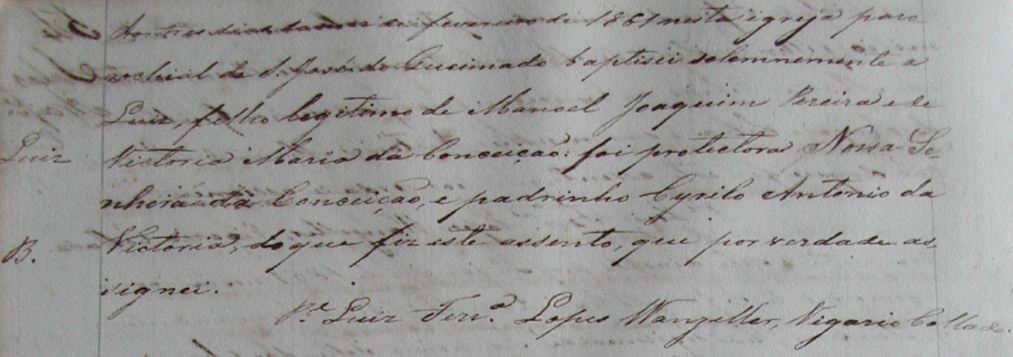 Aos tres dias do mes de fevereiro de 1861 nesta igreja paro
rochial de S. José do Queimado baptisei solemnemente a
Luiz, filho legitimo de Manoel Joaquim Pereira e de
Luiz Victoria Maria da Conceição: foi protectora Nossa Se-
nhora da Conceição, e padrinho Cyrilo Antonio da
B. Victoria, do que fiz este assento, que por verdade as
signei.
Pe. Luiz Ferr.a Lopes Wanzeller, Vigario Collado.